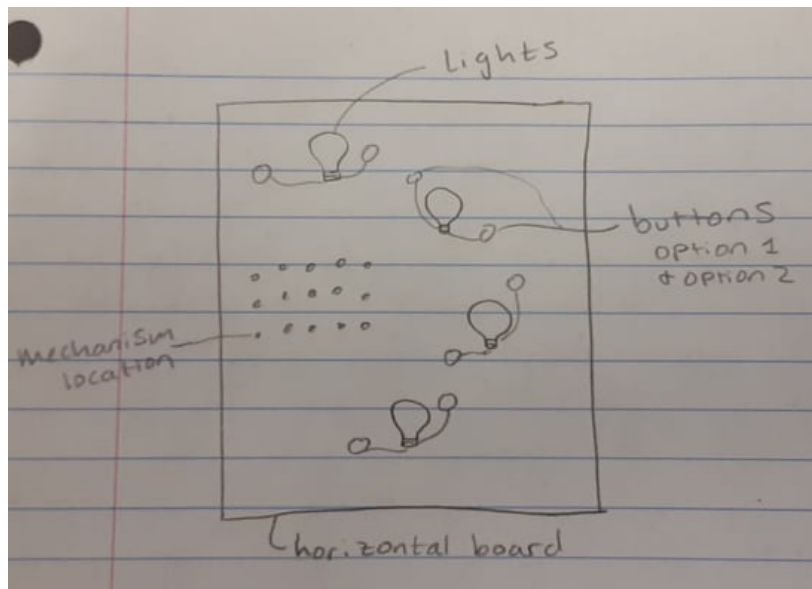 lights
buttons
option 1
& option 2
mechanism
location
horizontal board